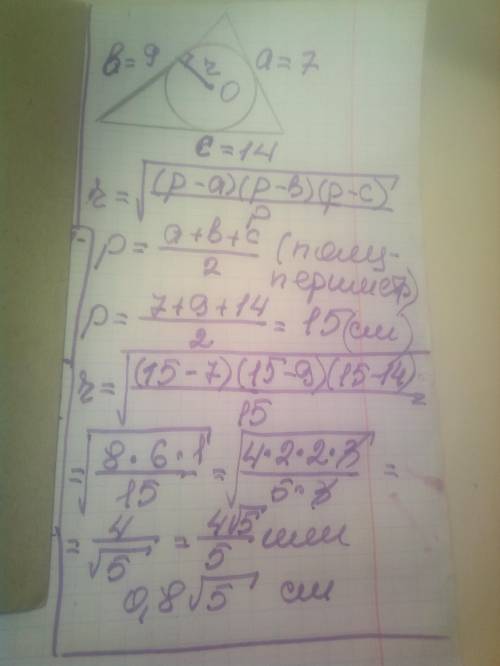 в = 9 r O a = 7
c = 14
r = √((p - a)(p - в)(p - c) / p)
p = (a + в + c) / 2 (полу-
периметр)
p = (7 + 9 + 14) / 2 = 15 (см)
r = √((15 - 7)(15 - 9)(15 - 14) / 15) =
= √(8 · 6 · 1 / 15) = √(4 · 2 · 2 · 3 / 5 · 3) =
= 4 / √5 = 4√5 / 5 или
0,8√5 см